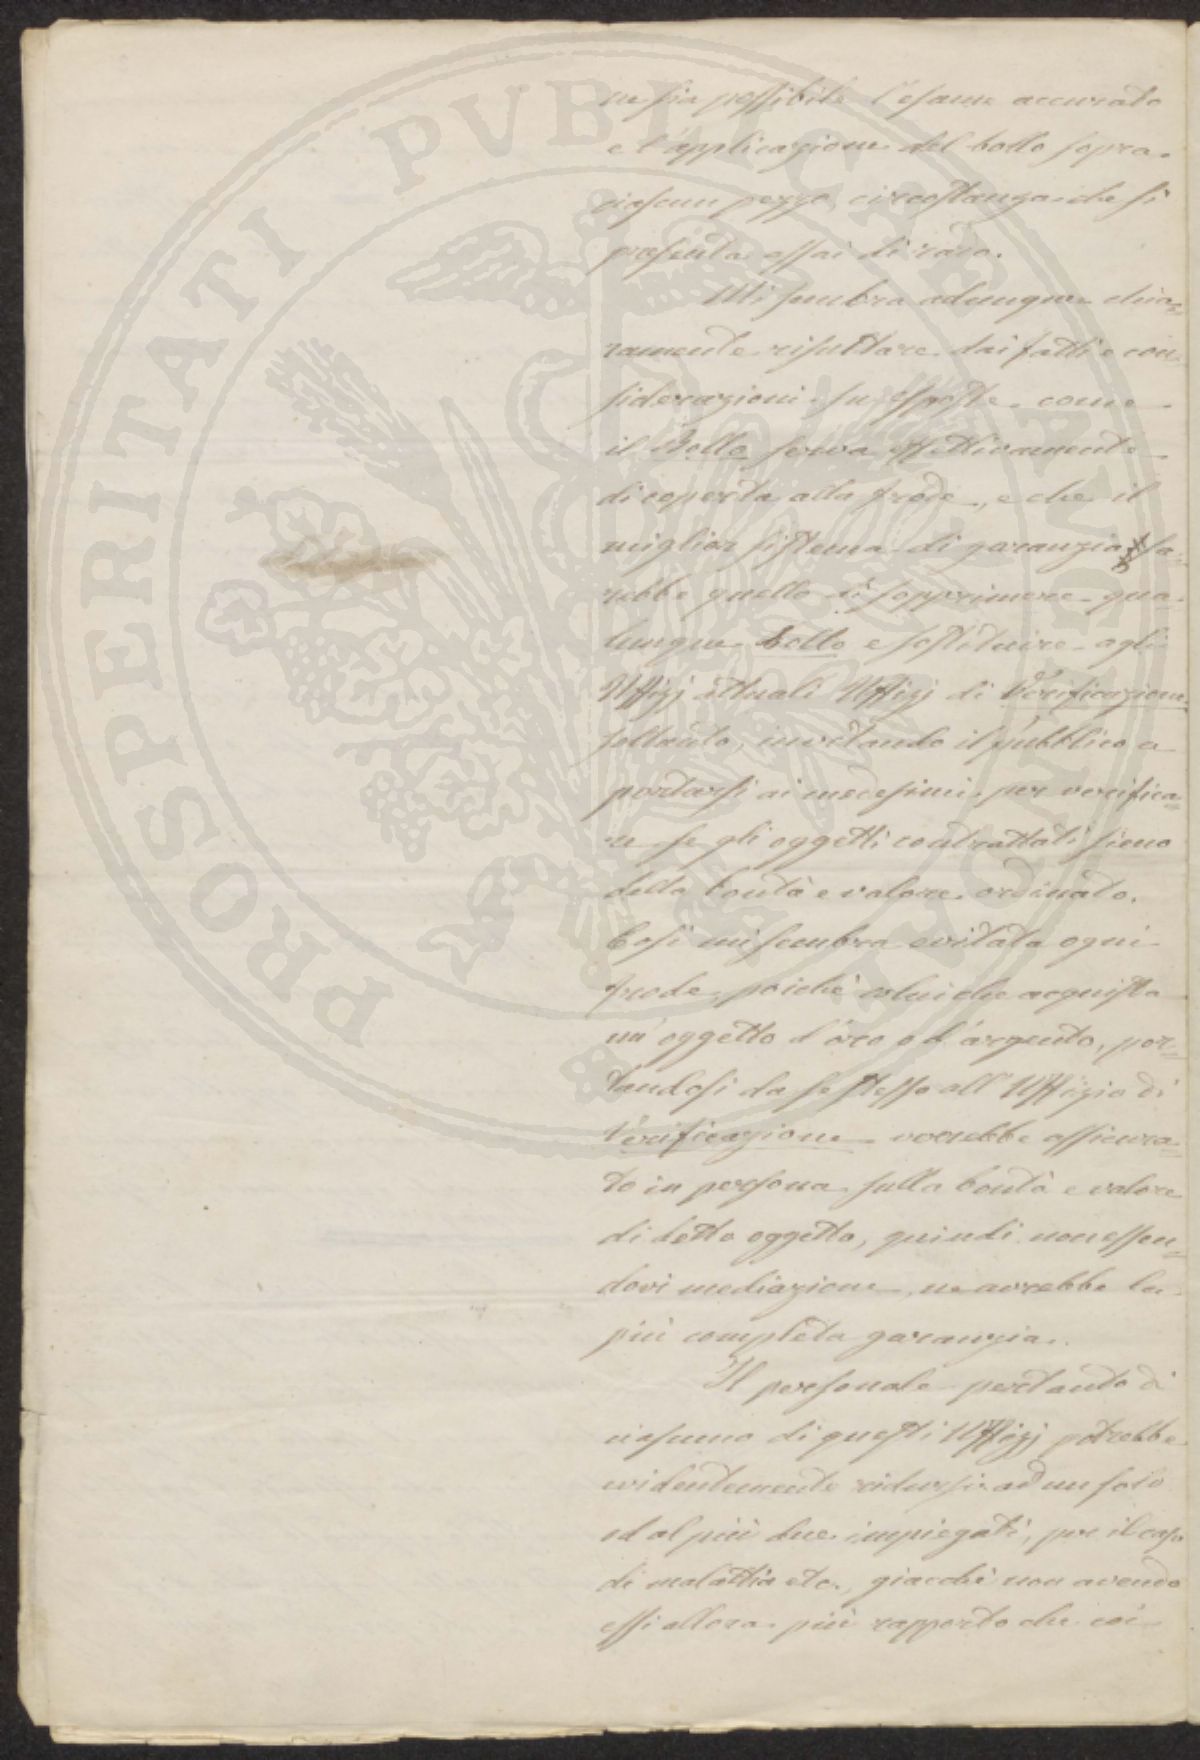 PROSPERITATI PVBLICAE AVGENDAE
ne sia possibile l'esame accurato
e l'applicazione del bollo sopra
ciascun pezzo, circostanza che si
presenta assai di rado.
Mi sembra adunque chia=
ramente risultare dai fatti e con=
siderazioni su esposte come
il Bollo serva effettivamente
di coperta alla frode, e che il
miglior sistema di garanzia sa=
rebbe quello di sopprimere qua=
lunque bollo e sostituire agli
Uffizj attuali Uffizj di Verificazione
soltanto, invitando il pubblico a
portarsi ai medesimi per verifica=
re se gli oggetti contrattati sieno
della bontà e valore ordinato.
Così mi sembra evitata ogni
frode, poichè colui che acquista
un' oggetto d'oro o d'argento, por=
tandosi da se stesso all'Uffizio di
Verificazione verrebbe assicura=
to in persona sulla bontà e valore
di detto oggetto, quindi non essen=
dovi mediazione, ne avrebbe la
più completa garanzia.
Il personale pertanto di
ciascuno di questi Uffizj potrebbe
evidentemente ridursi ad un solo
od al più due impiegati, per il caso
di malattia etc., giacchè non avendo
essi allora più rapporto che coi